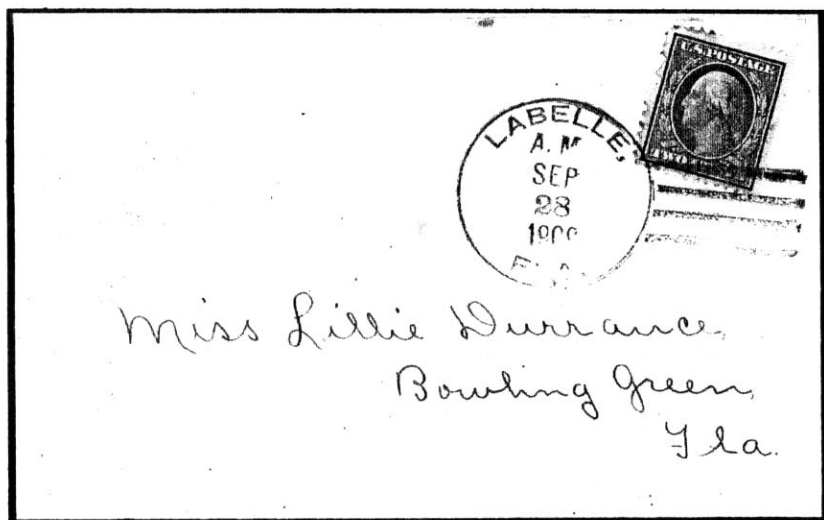 U.S. POSTAGE
LABELLE,
A.M
SEP
28
FLA.
Miss Lillie Durrance,
Bowling Green,
Fla.